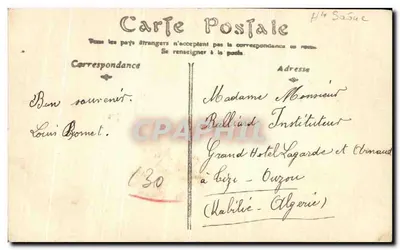 Carte Postale
Tous les pays étrangers n'acceptent pas la correspondance au recto.
Se renseigner à la poste.
Correspondance
Adresse
Bon souvenir.
Louis
Madame Monsieur
Instituteur
Grand Hotel Lagarde et
à Tizi-Ouzou
(Kabilie-Algérie)
CPAPHIL